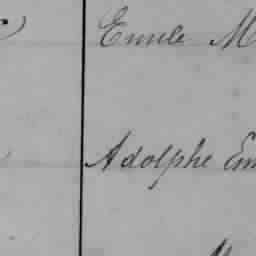 Emile M
Adolphe Em